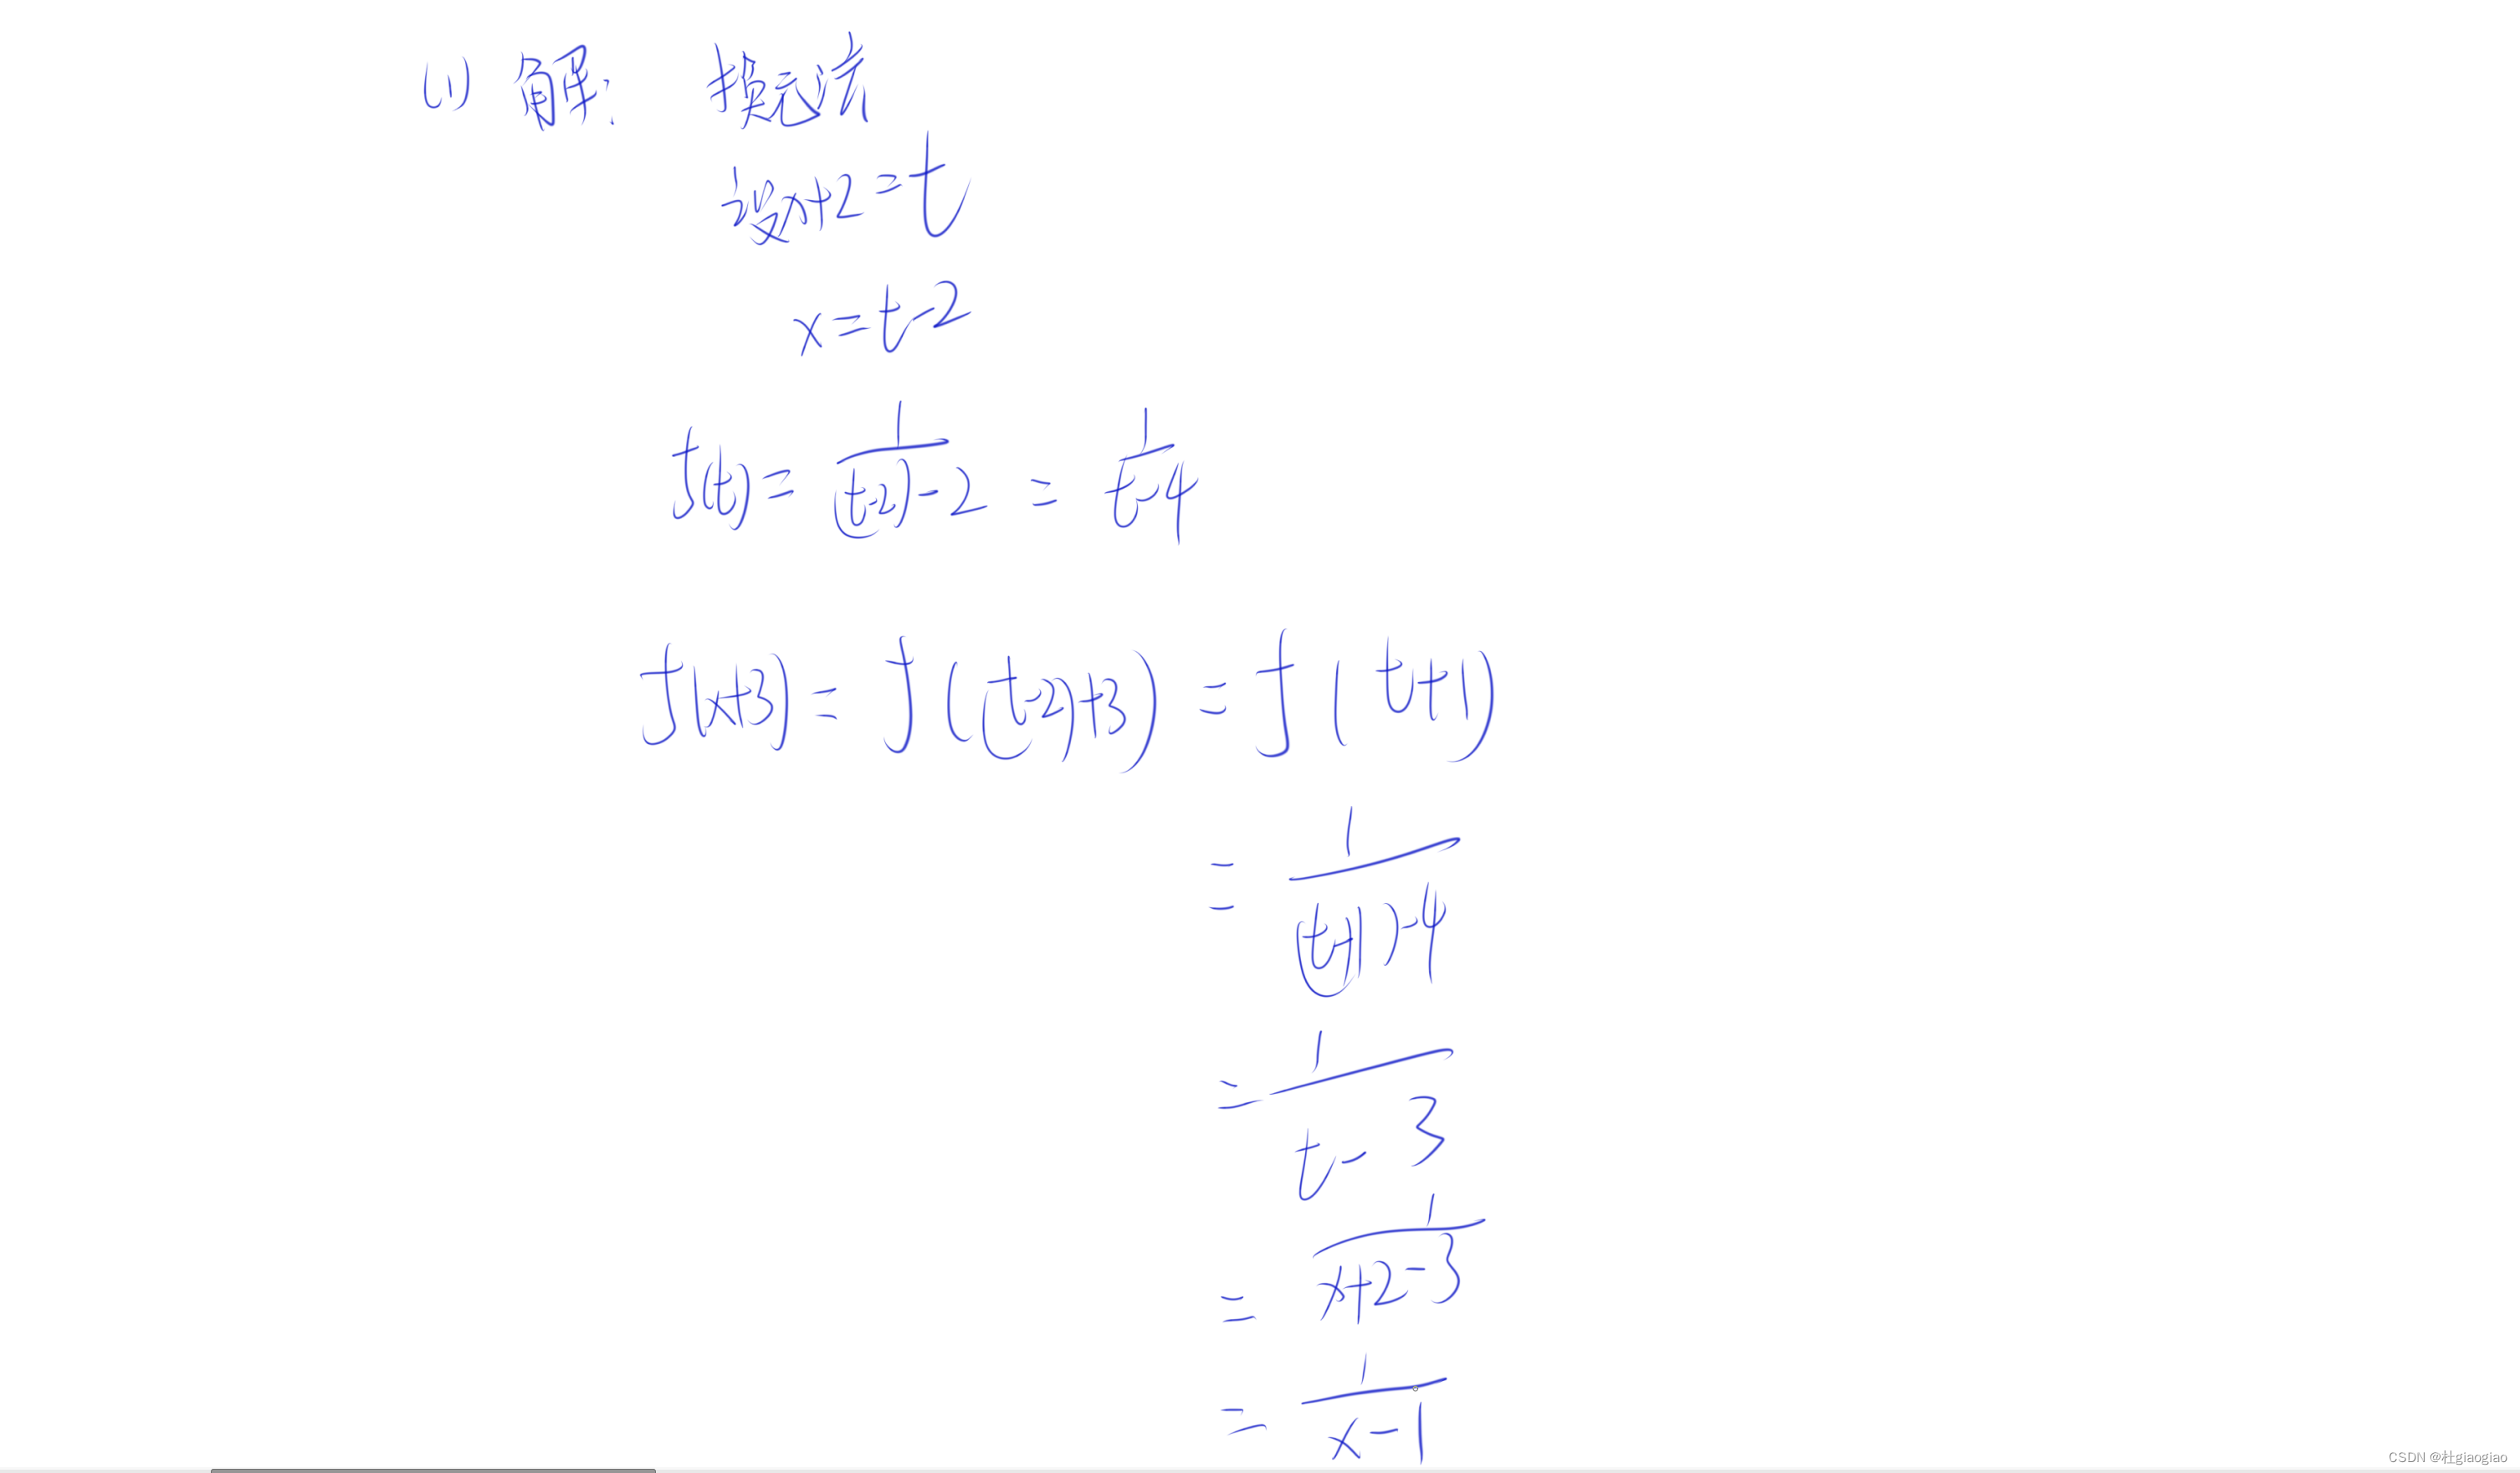 (1) 解: 换元法
设x+2=t
x=t-2
f(t)=1/((t-2)-2)=1/(t-4)
f(x+3)=f((t-2)+3)=f(t+1)
=1/((t+1)-4)
=1/(t-3)
=1/(x+2-3)
=1/(x-1)
CSDN @杜giaogiao